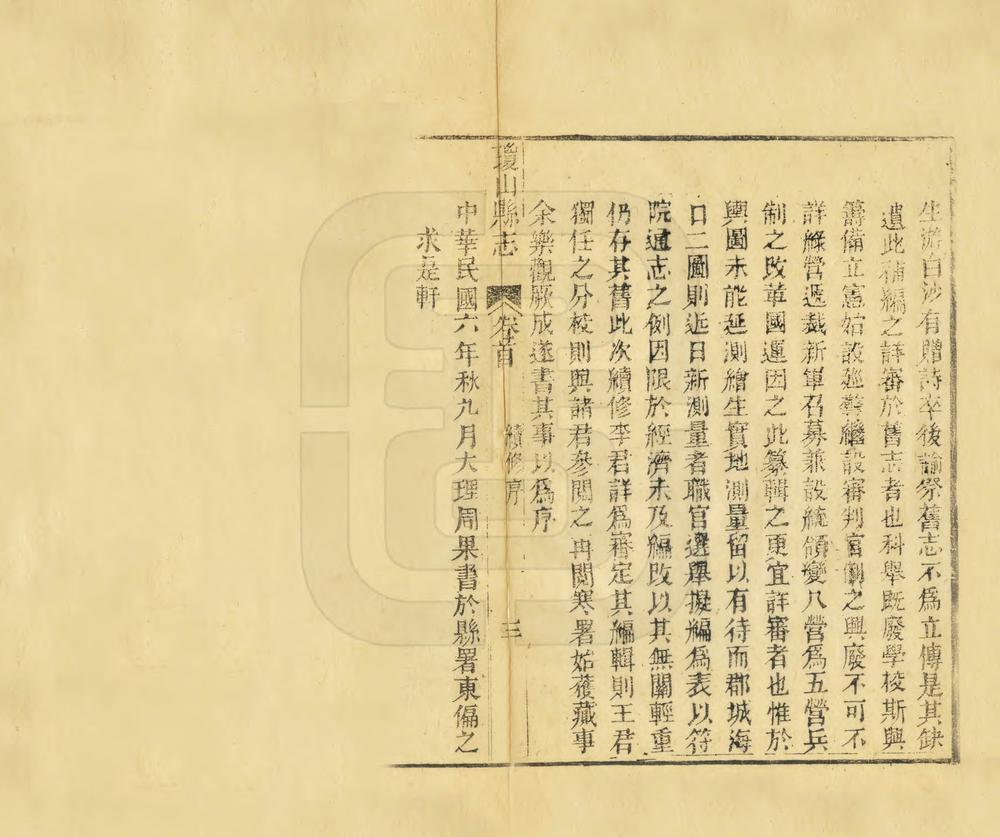 生游白沙有贈詩卒後諭祭舊志不爲立傳是其缺
遺此補編之詳審於舊志者也科舉既廢學校斯興
籌備立憲始設巡警繼設審判官制之興廢不可不
詳綠營遞裁新軍召募兼設統領變八營爲五營兵
制之改革國運因之此纂輯之更宜詳審者也惟於
輿圖未能延測繪生實地測量留以有待而郡城海
口二圖則近日新測量者職官選舉擬編爲表以符
院通志之例因限於經濟未及編改以其無關輕重
仍存其舊此次續修李君詳爲審定其編輯則王君
獨任之分校則與諸君參閱之冉閱寒暑始蕆事
余樂觀厥成遂書其事以爲序
瓊山縣志 卷首 續修序 三
中華民國六年秋九月大理周果書於縣署東偏之
求是軒